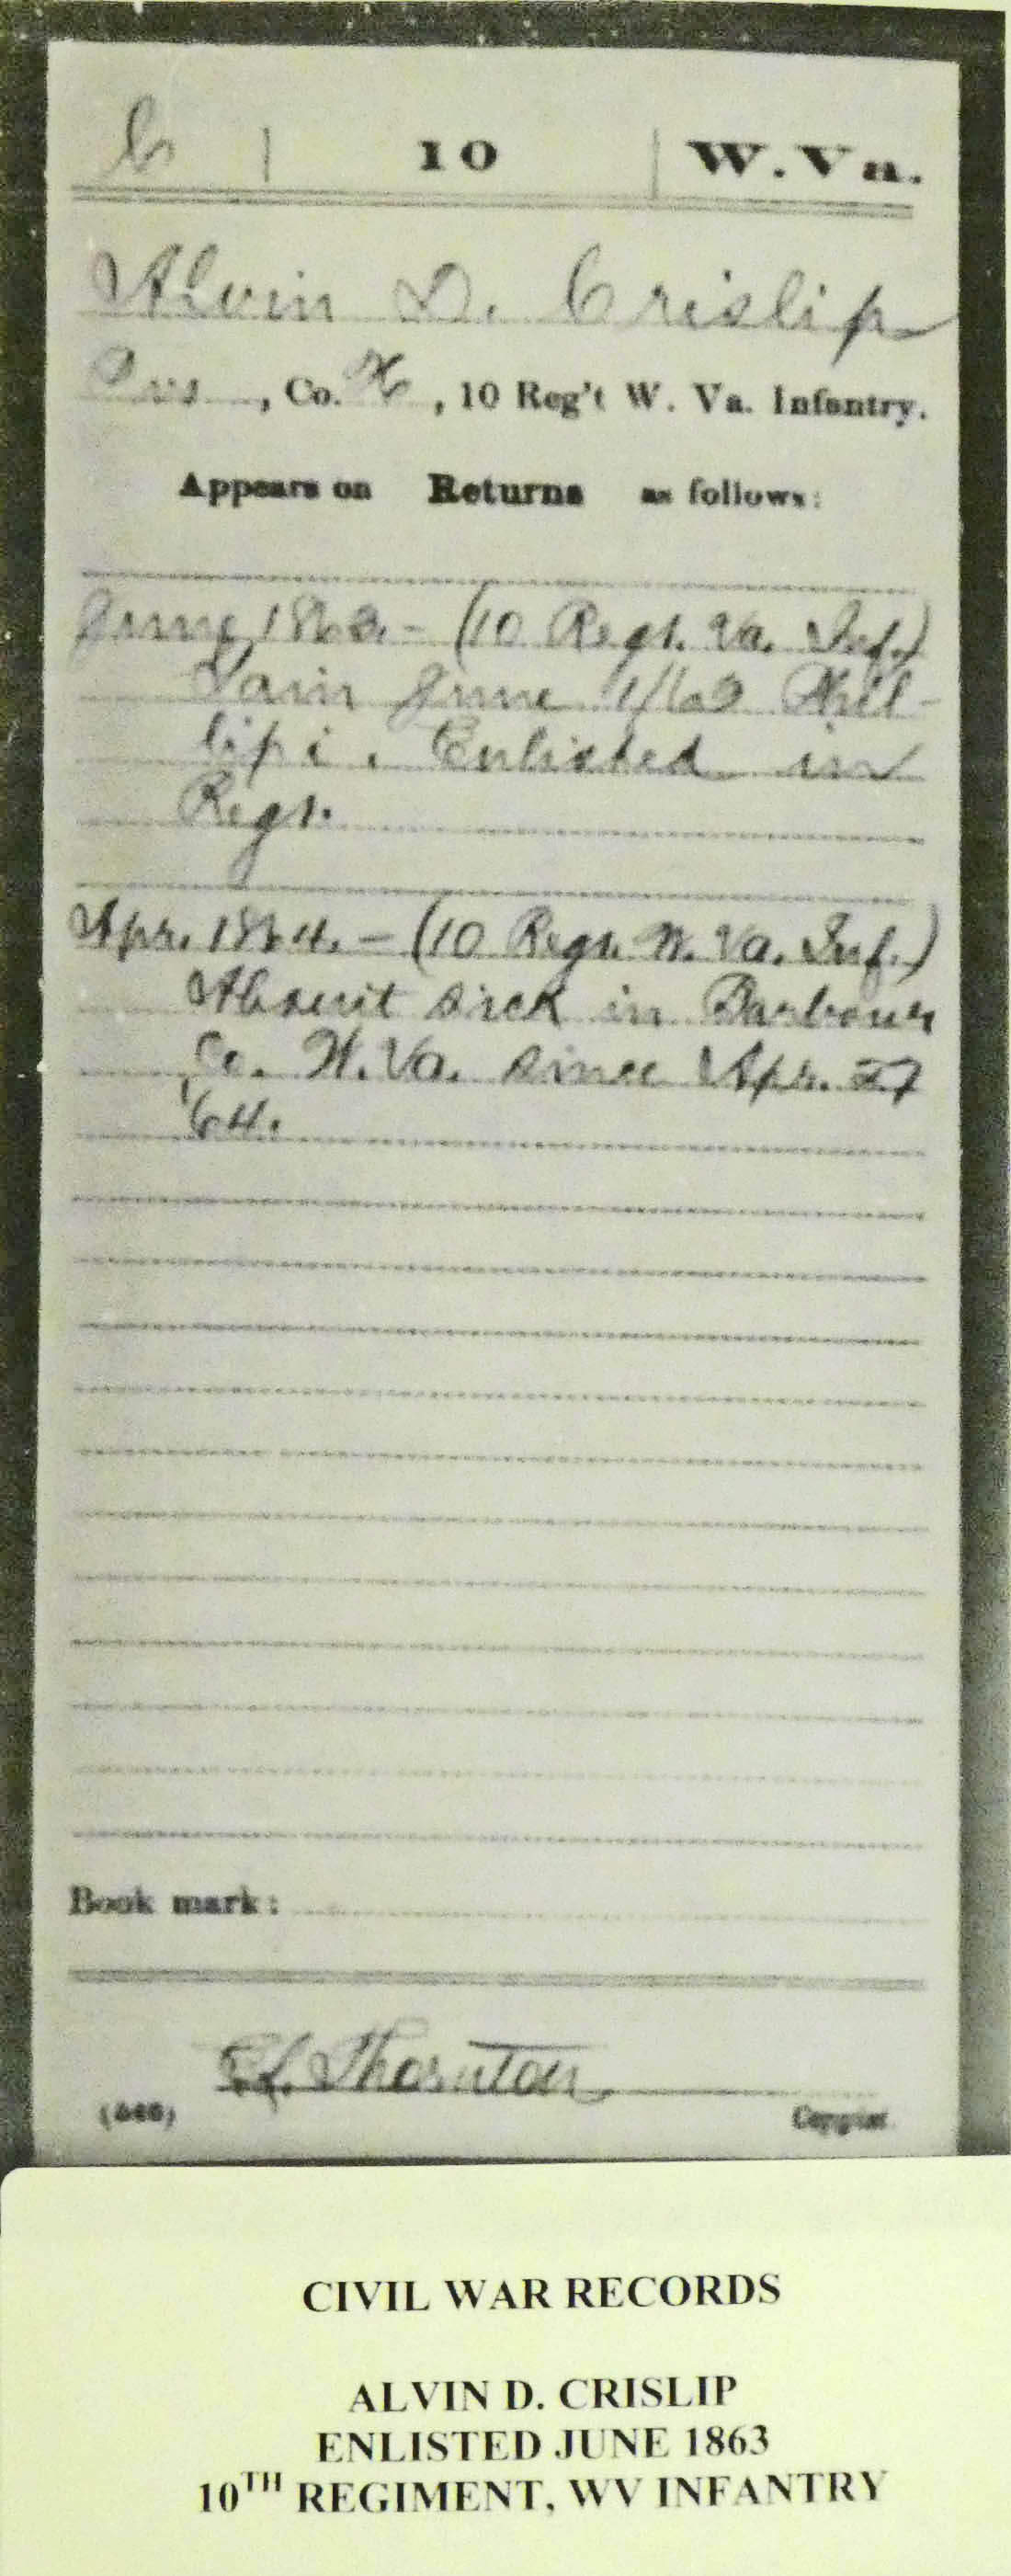 C | 10 | W. Va.
Alvin D. Crislip
Pvt., Co. H, 10 Reg't W. Va. Infantry.
Appears on Returns as follows:
June, 186 - (10 Regt. Va. Inf.)
June 1/6 Phil-
lipi. Enlisted in
Regt.
Apr. 1864. - (10 Regt. W. Va. Inf.)
Absent sick in Barbour
Co. W. Va. since Apr. 27
'64.
Book mark:
Thornton
Copyist.
CIVIL WAR RECORDS
ALVIN D. CRISLIP
ENLISTED JUNE 1863
10TH REGIMENT, WV INFANTRY